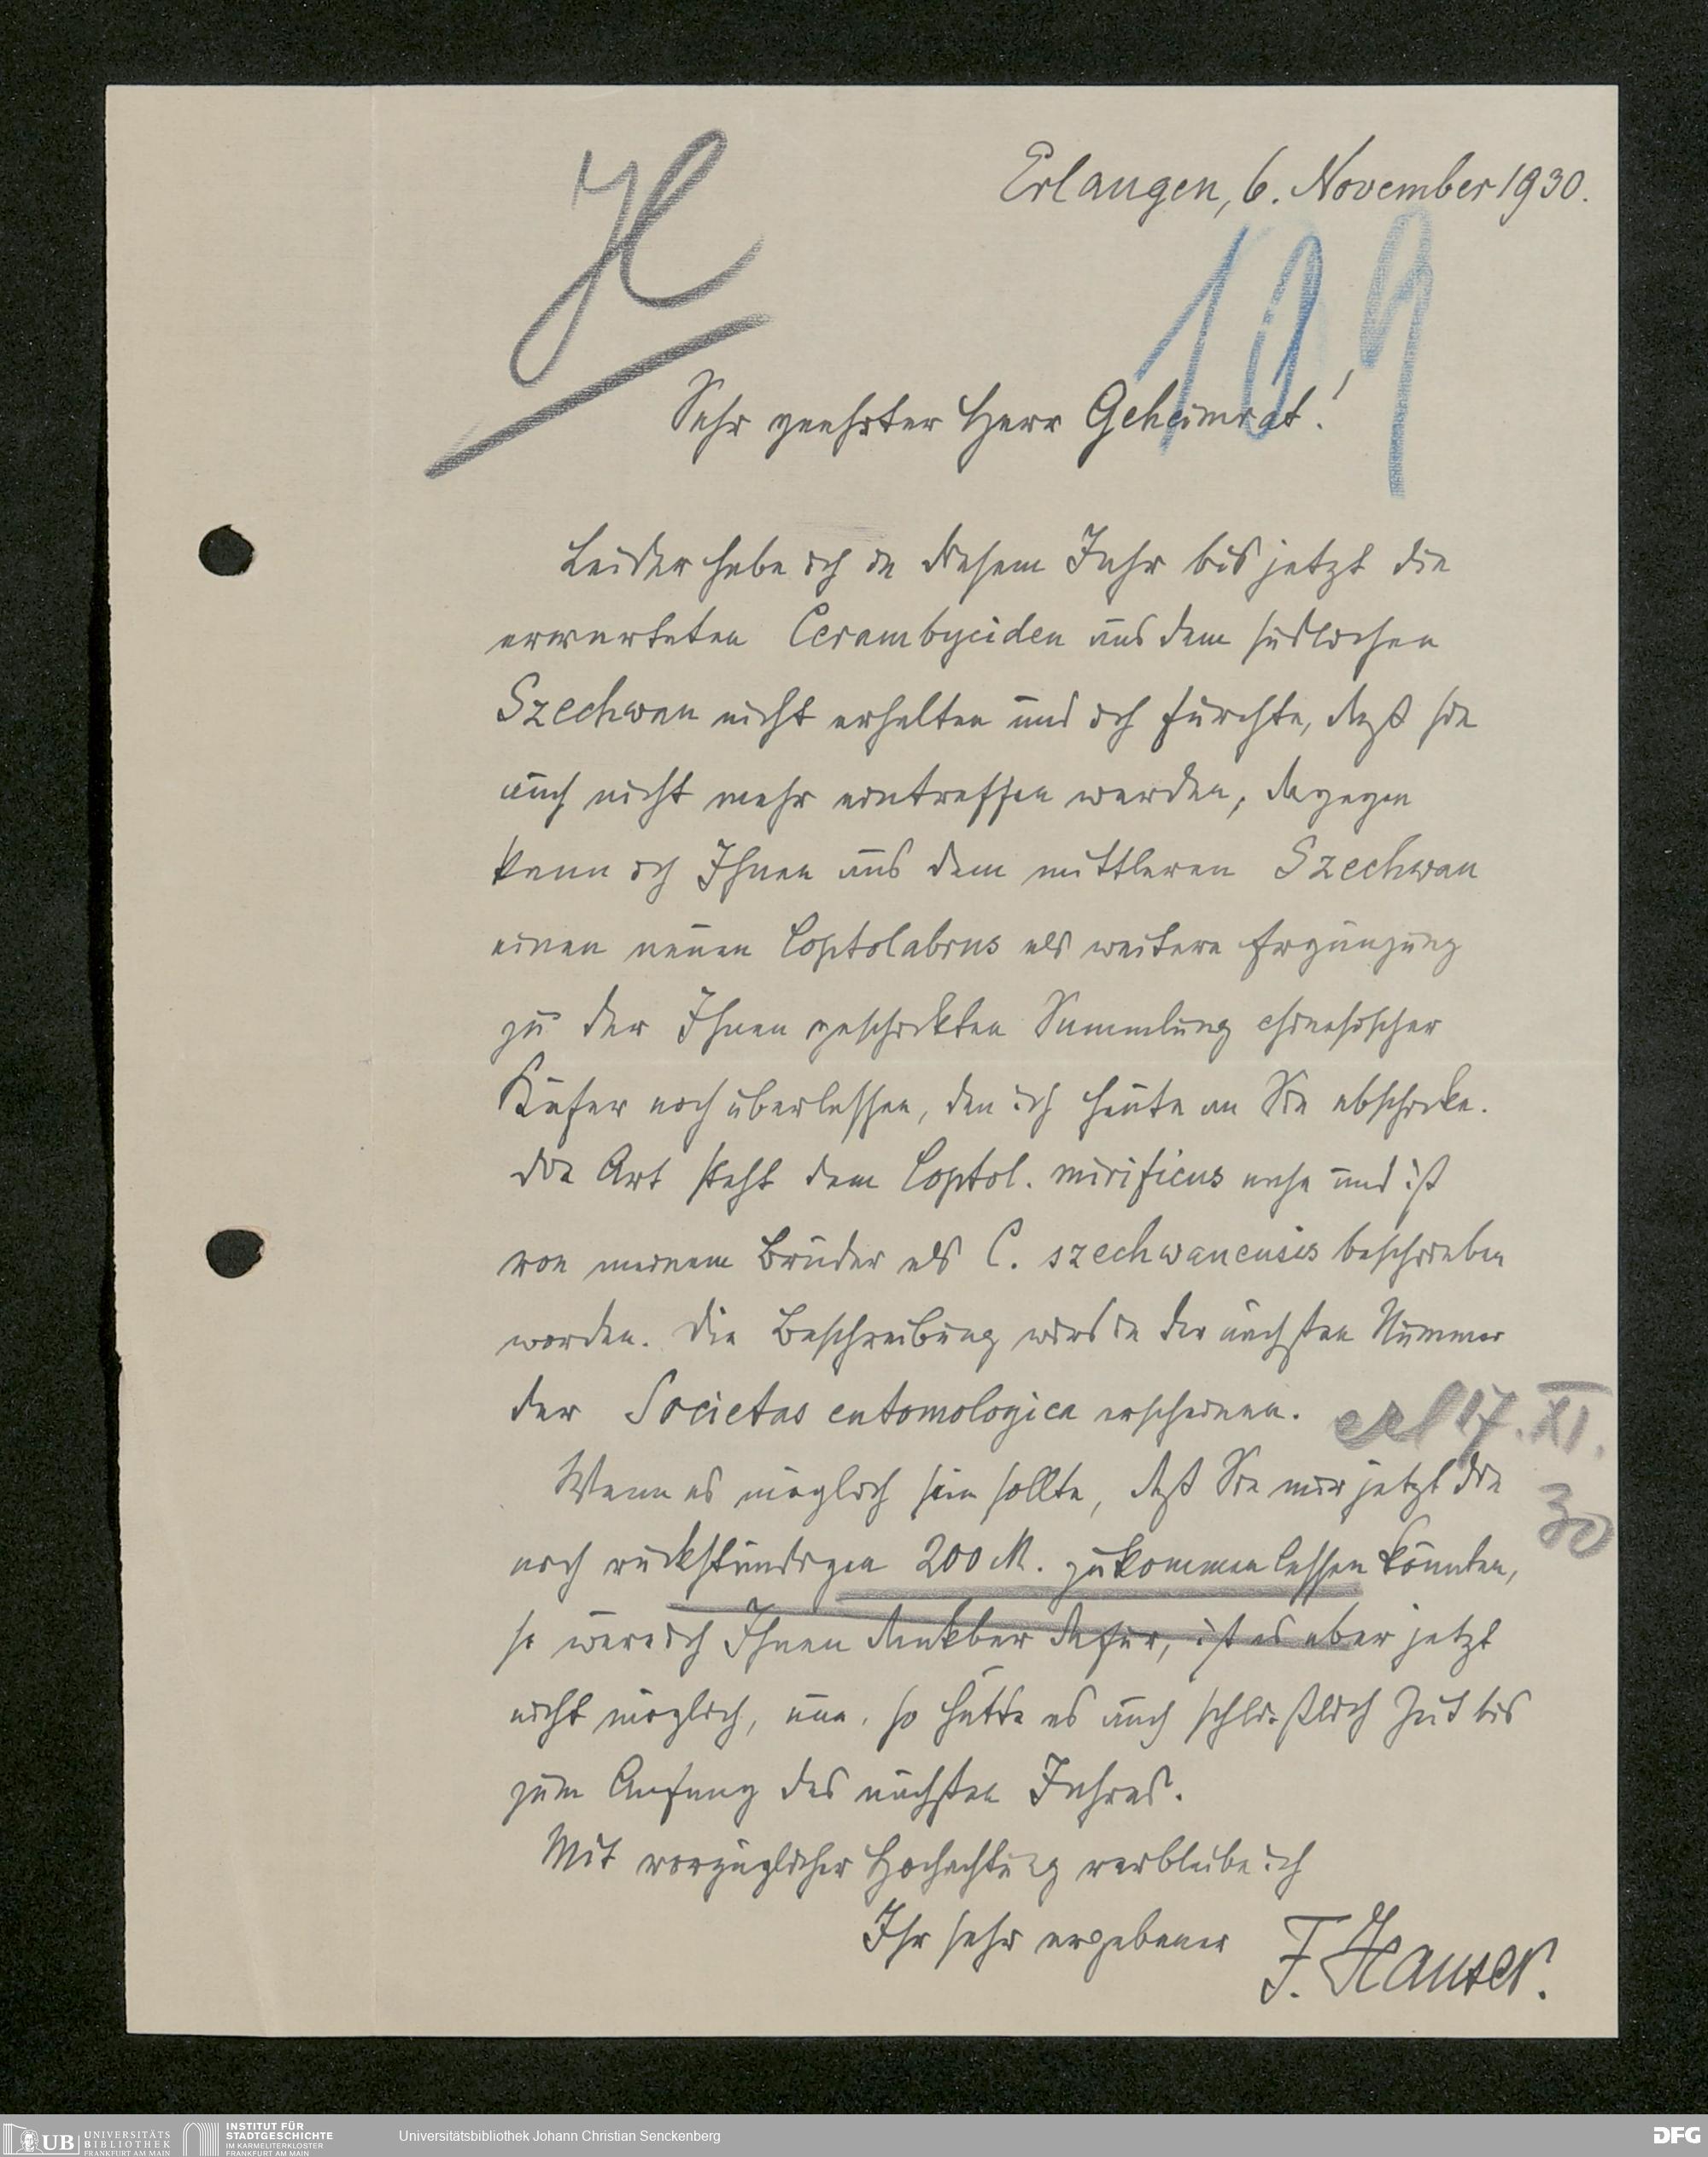 H
Erlangen, 6. November 1930.
109
Sehr geehrter Herr Geheimrat!
Leider habe ich in diesem Jahr bis jetzt die
erwarteten Cerambyciden aus dem südlichen
Szechwan nicht erhalten und ich fürchte, daß sie
auch nicht mehr eintreffen werden, dagegen
kann ich Ihnen aus dem mittleren Szechwan
einen neuen Coptolabrus als weitere Ergänzung
zu der Ihnen geschickten Sammlung chinesischer
Käfer noch überlassen, den ich heute an Sie abschicke.
Die Art steht dem Coptol. mirificus nahe und ist
von meinem Bruder als C. szechwanensis beschrieben
worden. Die Beschreibung wird in der nächsten Nummer
der Societas entomologica erscheinen.
erl 17. XI.
30
Wenn es möglich sein sollte, daß Sie mir jetzt die
noch rückständigen 200 M. zukommen lassen könnten,
so wäre ich Ihnen dankbar dafür, ist es aber jetzt
nicht möglich, nun, so hätte es auch schließlich Zeit bis
zum Anfang des nächsten Jahres.
Mit vorzüglicher Hochachtung verbleibe ich
Ihr sehr ergebener F. Hauser.
UB UNIVERSITÄTS BIBLIOTHEK FRANKFURT AM MAIN
INSTITUT FÜR STADTGESCHICHTE IM KARMELITERKLOSTER FRANKFURT AM MAIN
Universitätsbibliothek Johann Christian Senckenberg
DFG